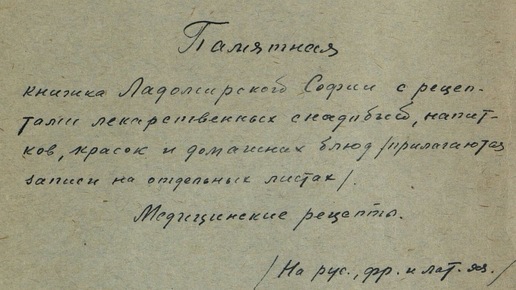 Памятная
книжка Ладомирского Софии с рецеп-
тами лекарственных снадобий, напит-
ков, красок и домашних блюд /прилагаются
записи на отдельных листах/.
Медицинские рецепты.
/На рус., фр. и лат. яз./